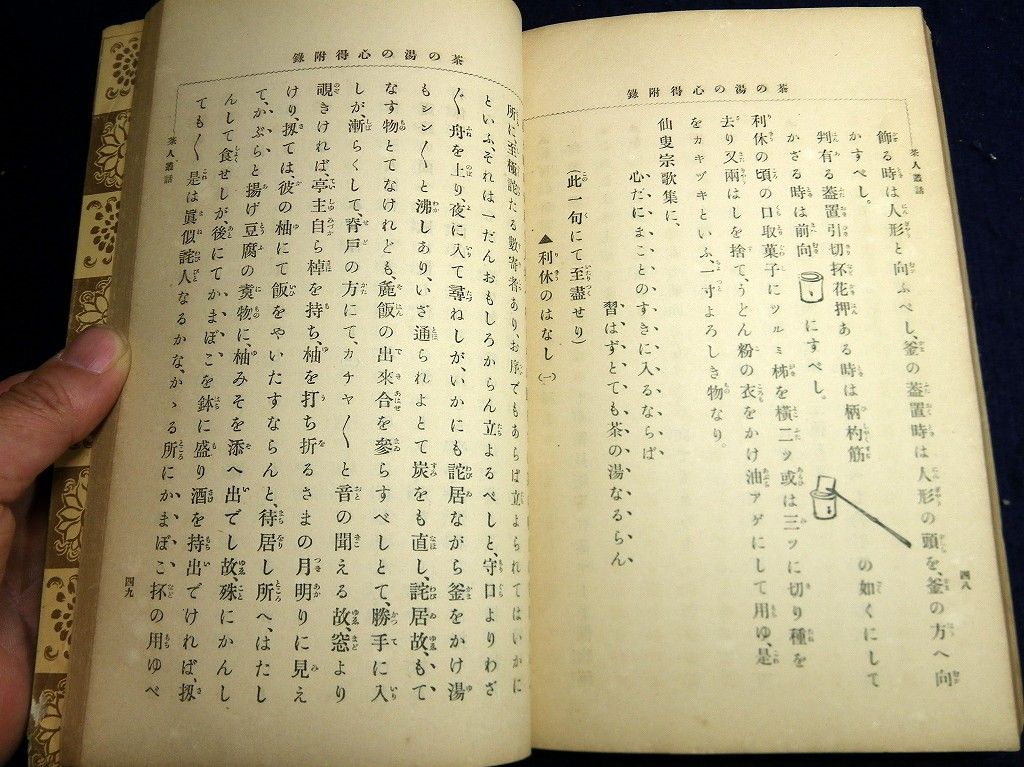 茶の湯の心得附錄
茶人叢話
四八
飾る時は人形と向ふべし、釜の蓋置時は人形の頭を、釜の方へ向
かすべし。
判有る蓋置引切抔花押ある時は柄杓筋
の如くにして
かざる時は前向
にすべし。
利休の頃の口取菓子にツルミ柿を橫二ツ或は三ツに切り種を
去り又兩はしを捨て、うどん粉の衣をかけ油アゲにして用ゆ、是
をカキヅキといふ、一寸よろしき物なり。
仙叟宗歌集に、
心だにまことのすきに入るならば
習はずとても茶の湯なるらん
(此一句にて至盡せり)
▲利休のはなし(一)
茶の湯の心得附錄
茶人叢話
四九
所に至極詫たる數寄者ありお序でもあらば立よられてはいかに
といふ、それは一だんおもしろからん立よるべしと、守口よりわざ
〲舟を上り、夜に入て尋ねしが、いかにも詫居ながら釜をかけ湯
もシン〱と沸しあり、いざ通られよとて炭をも直し、詫居故、もて
なす物とてなけれども、麁飯の出來合を參らすべしとて、勝手に入
しが、漸らくして、脊戶の方にて、カチャ〱と音の聞える故、窓より
覗きければ、亭主自ら棹を持ち、柚を打ち折るさまの月明りに見え
けり、扨ては、彼の柚にて飯をやいたすならんと、待居し所へ、はたし
て、かぶらと揚げ豆腐の煑物に、柚みそを添へ出でし故、殊にかんし
んして食せしが、後にてかまぼこを鉢に盛り酒を持出でければ、扨
ても〱是は眞似詫人なるかな、かゝる所にかまぼこ抔の用ゆべ